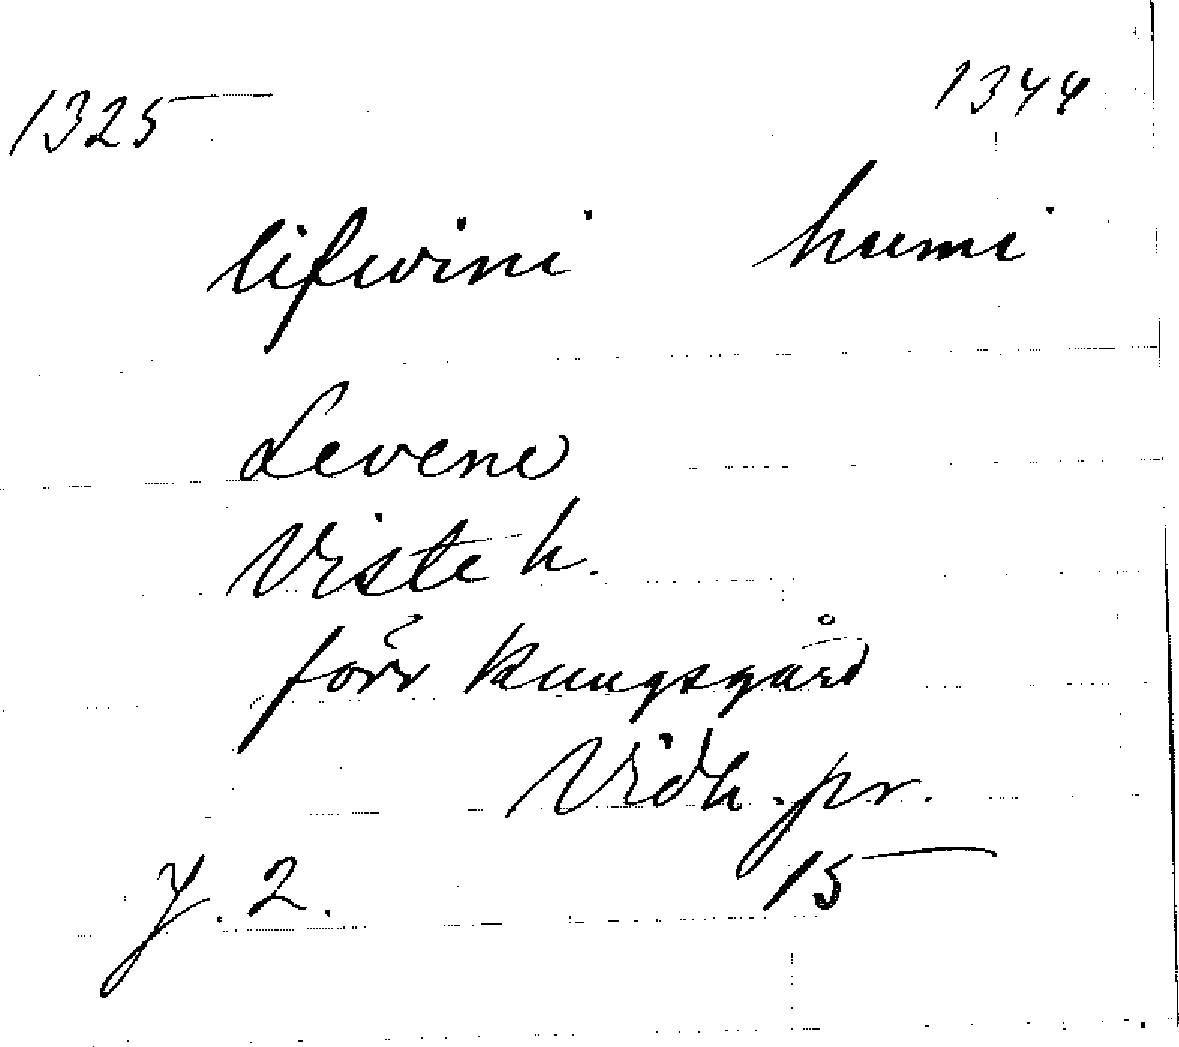 1325 1344
lifvini humi
Levene
Viste h.
förr kungsgård
Vidh. pr.
J. 2. 15